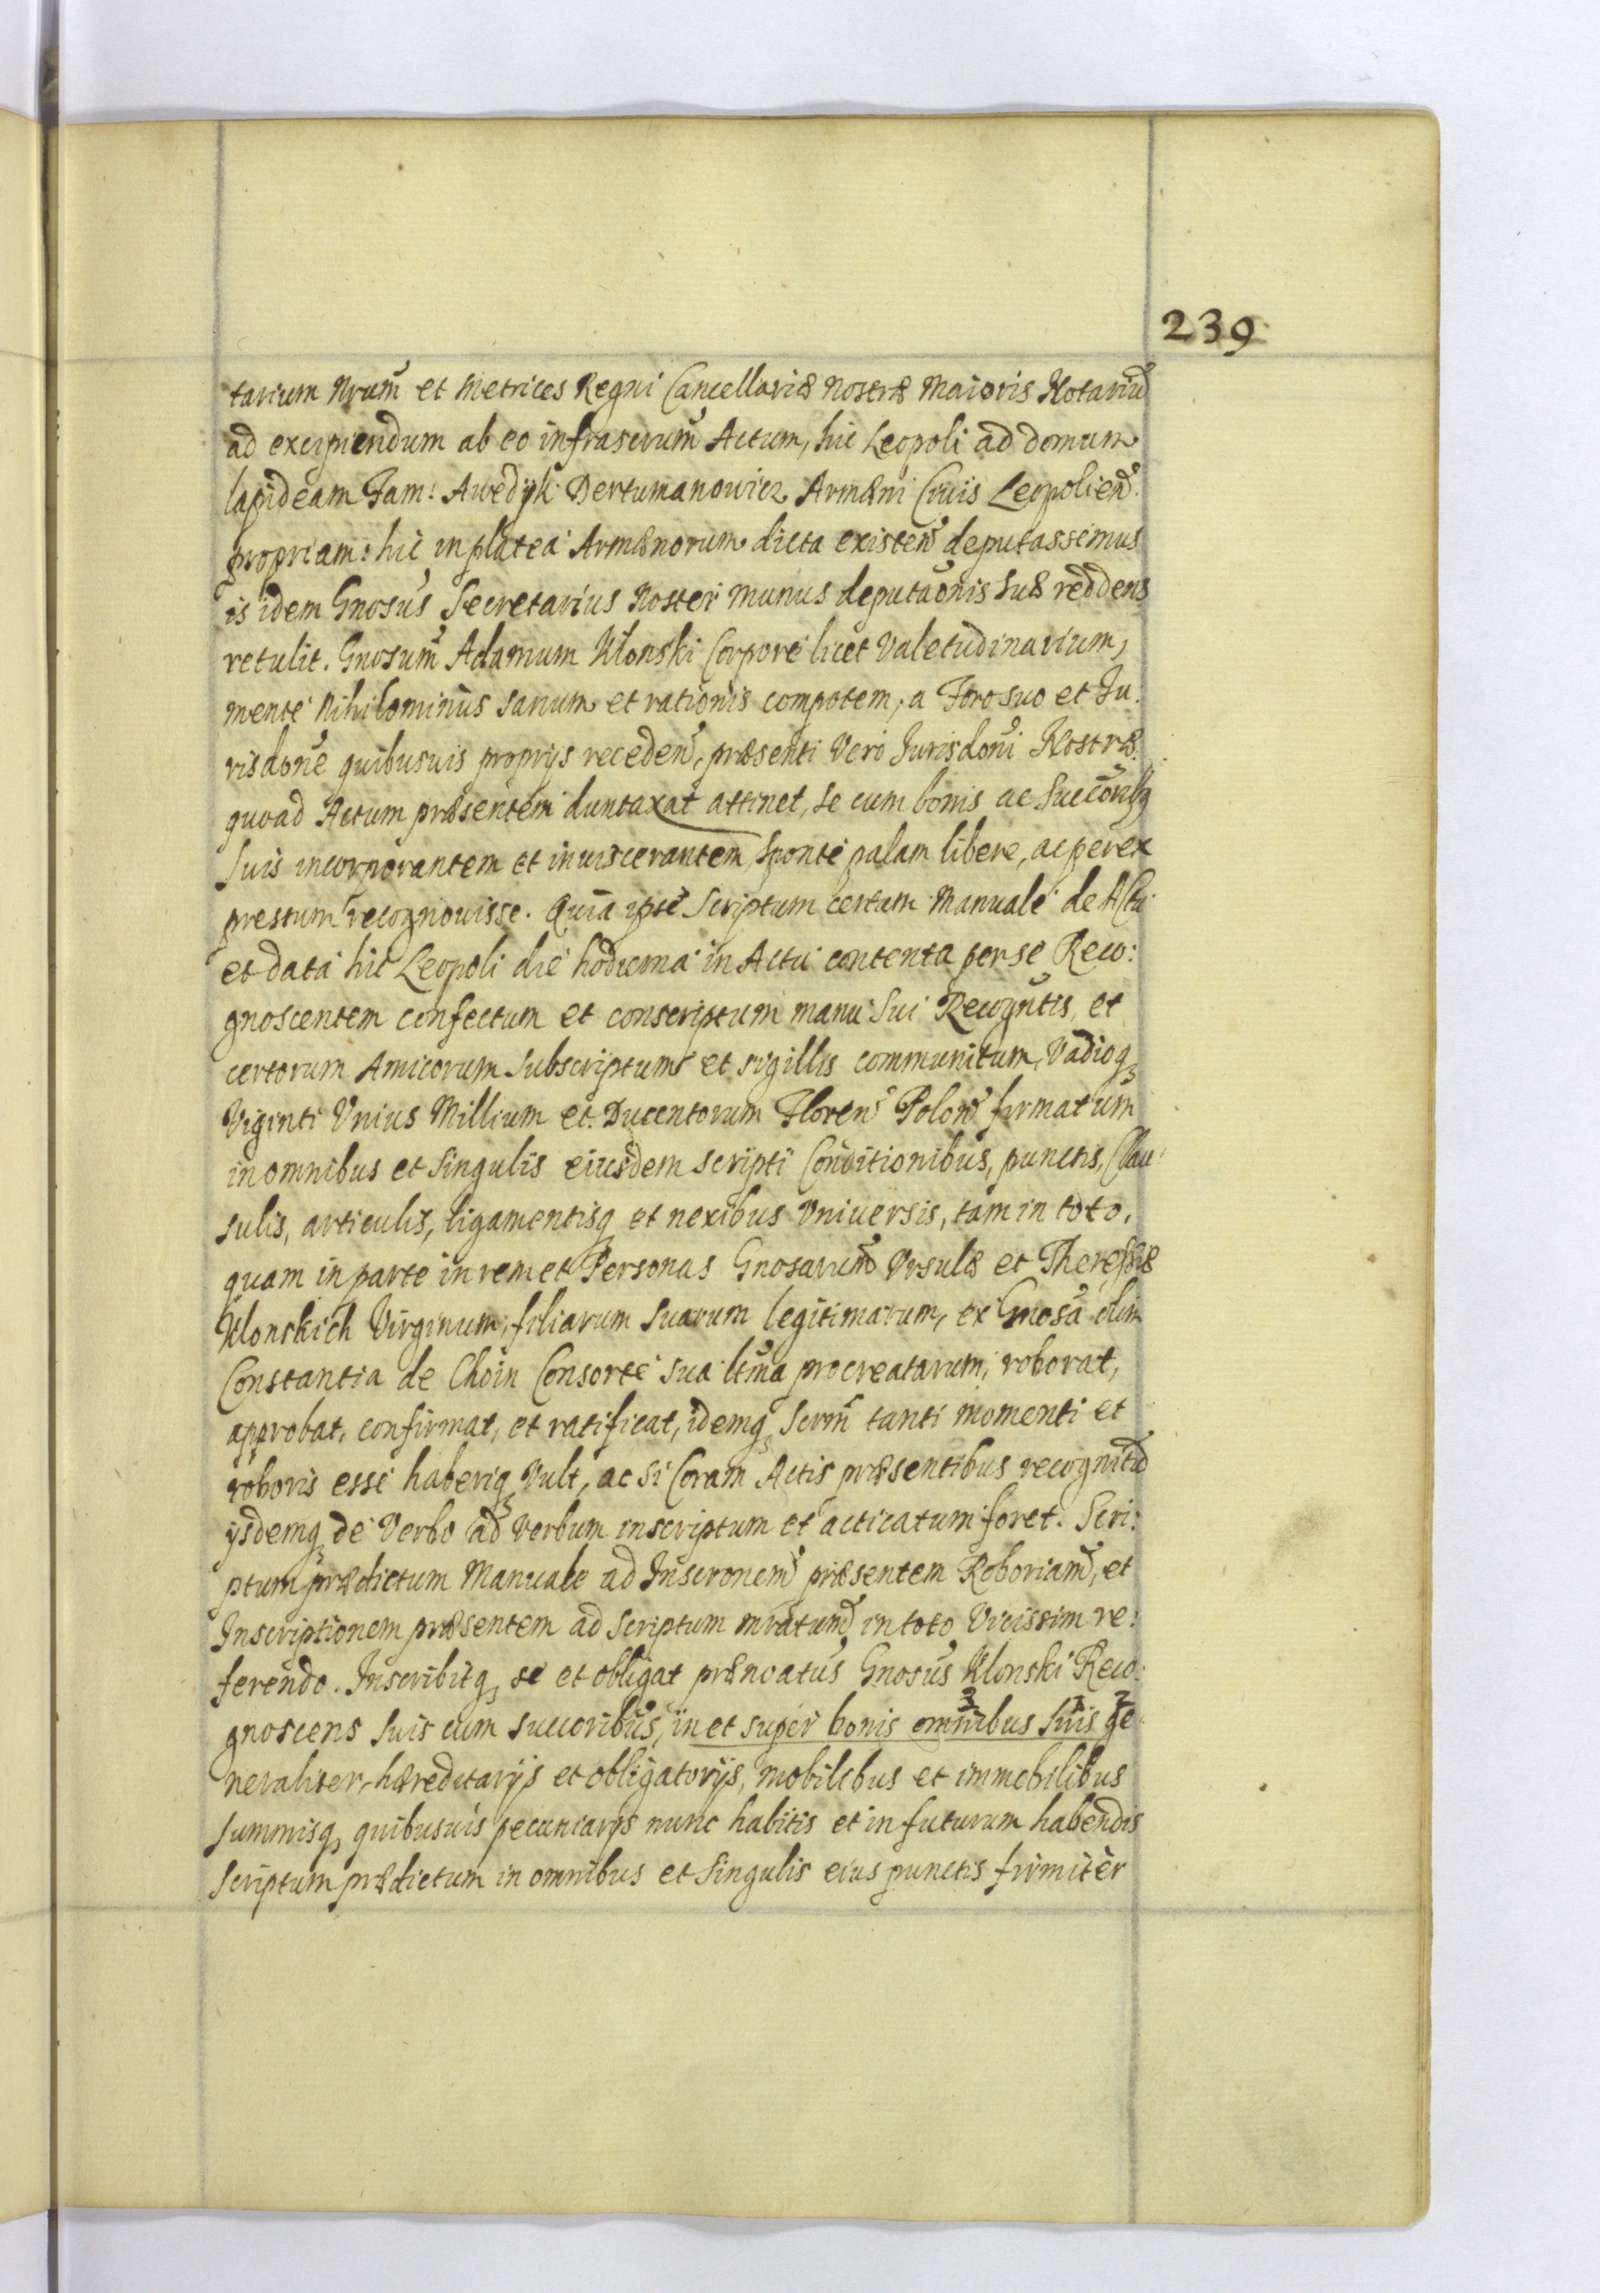 239
tarium Nrum̃ et Metrices Regni Cancellariæ Nostræ Maioris Notariũ
ad excipiendum ab eo infrascrum̃ Actum, hic Leopoli ad domum
lapideam Fam: Awedyk Dertumanowicz Armæni Civis Leopolien̄.
propriam: hic in platea Armænorum dicta existen̄ deputassemus
is idem Gnosus̃ Secretarius Noster munus deputaõnis suæ reddens
retulit. Gnosum̃ Adamum Klonski Corpore licet Valetudinarium,
mente Nihilominus sanum et rationis compotem, a Foro suo et Ju:
risdone̊ quibusuis proprijs receden̄, præsenti Vero Jurisdoni̊ Nostræ
quoad Actum præsentem duntaxat attinet, se cum bonis ac Succorib̃9
Suis incorporantem et inviscerantem, Sponte palam libere, ac per ex
pressum recognovisse. Quia ipse Scriptum certum Manuale de Actu
et data hic Leopoli die hodierna in Actu contenta per se Reco:
gnoscentem confectum et conscriptum manu Sui Recogñtis, et
certorum Amicorum Subscriptum et sigillis communitum, Vadioq3
Viginti Vnius Millium et Ducentorum Floren̄ Polon̄ firmatum
in omnibus et Singulis eiusdem scripti Conditionibus, punctis, Clau:
sulis, articulis, ligamentisq3 et nexibus Vniversis, tam in toto,
quam in parte in rem et Personas Gnosarum̃ Vrsulæ et Theresiæ
Klonskich Virginum, filiarum Suarum legitimarum, ex Gnosa̋ olim
Constantia de Choin Consorte sua ltma̋ procreatarum, roborat,
approbat, confirmat, et ratificat, idemq3 Scrm̃ tanti momenti et
roboris esse haberiq3 Vult, ac Si Coram Actis præsentibus recognitũ
ijsdemq3 de Verbo ad Verbum inscriptum et acticatum foret. Scri:
ptum prædictum Manuale ad Inscronem̄ præsentem Roboriam̄, et
Inscriptionem præsentem ad Scriptum mratum̄ in toto Vicissim re:
ferendo. Inscribitq3 se et obligat prænoatus̃ Gnosus̃ Klonski Reco:
gnoscens Suis cum succoribus̃, in et super bonis omnibus Suis ge
3 1 2
neraliter, hæreditarijs et obligatorijs, mobilibus et immobilibus
Summisq3 quibusuis pecuniarijs nunc habitis et in futurum habendis
Scriptum prædictum in omnibus et Singulis eius punctis firmiter